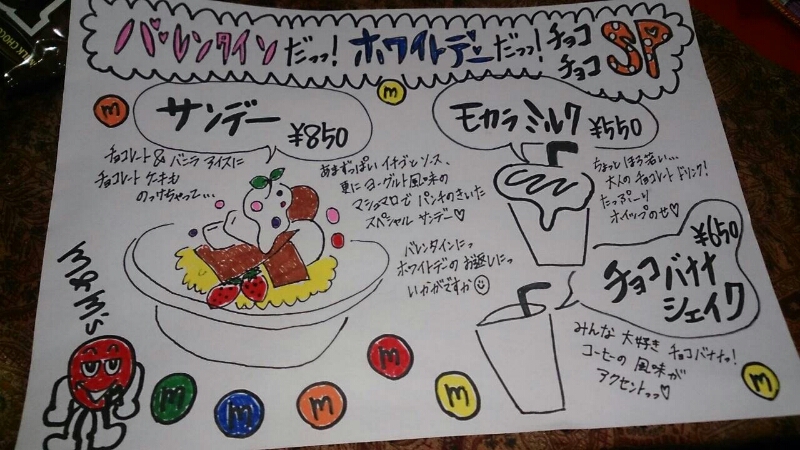 バレンタインだっっ! ホワイトデーだっっ! チョコチョコSP
サンデー
¥850
チョコレート&バニラアイスに
チョコレートケーキも
のっけちゃって…
あまずっぱいイチゴとソース、
更にヨーグルト風味の
マシュマロでパンチのきいた
スペシャルサンデー♡
バレンタインにっ
ホワイトデーのお返しにっ
いかがですか☺
モカラミルク
¥550
ちょっとほろ苦い…
大人のチョコレートドリンク!
たっぷーり
ホイップのせ♡
¥650
チョコバナナ
シェイク
みんな大好きチョコバナナっ!
コーヒーの風味が
アクセントっっ♡
m
m
m
m
m
m
m
m